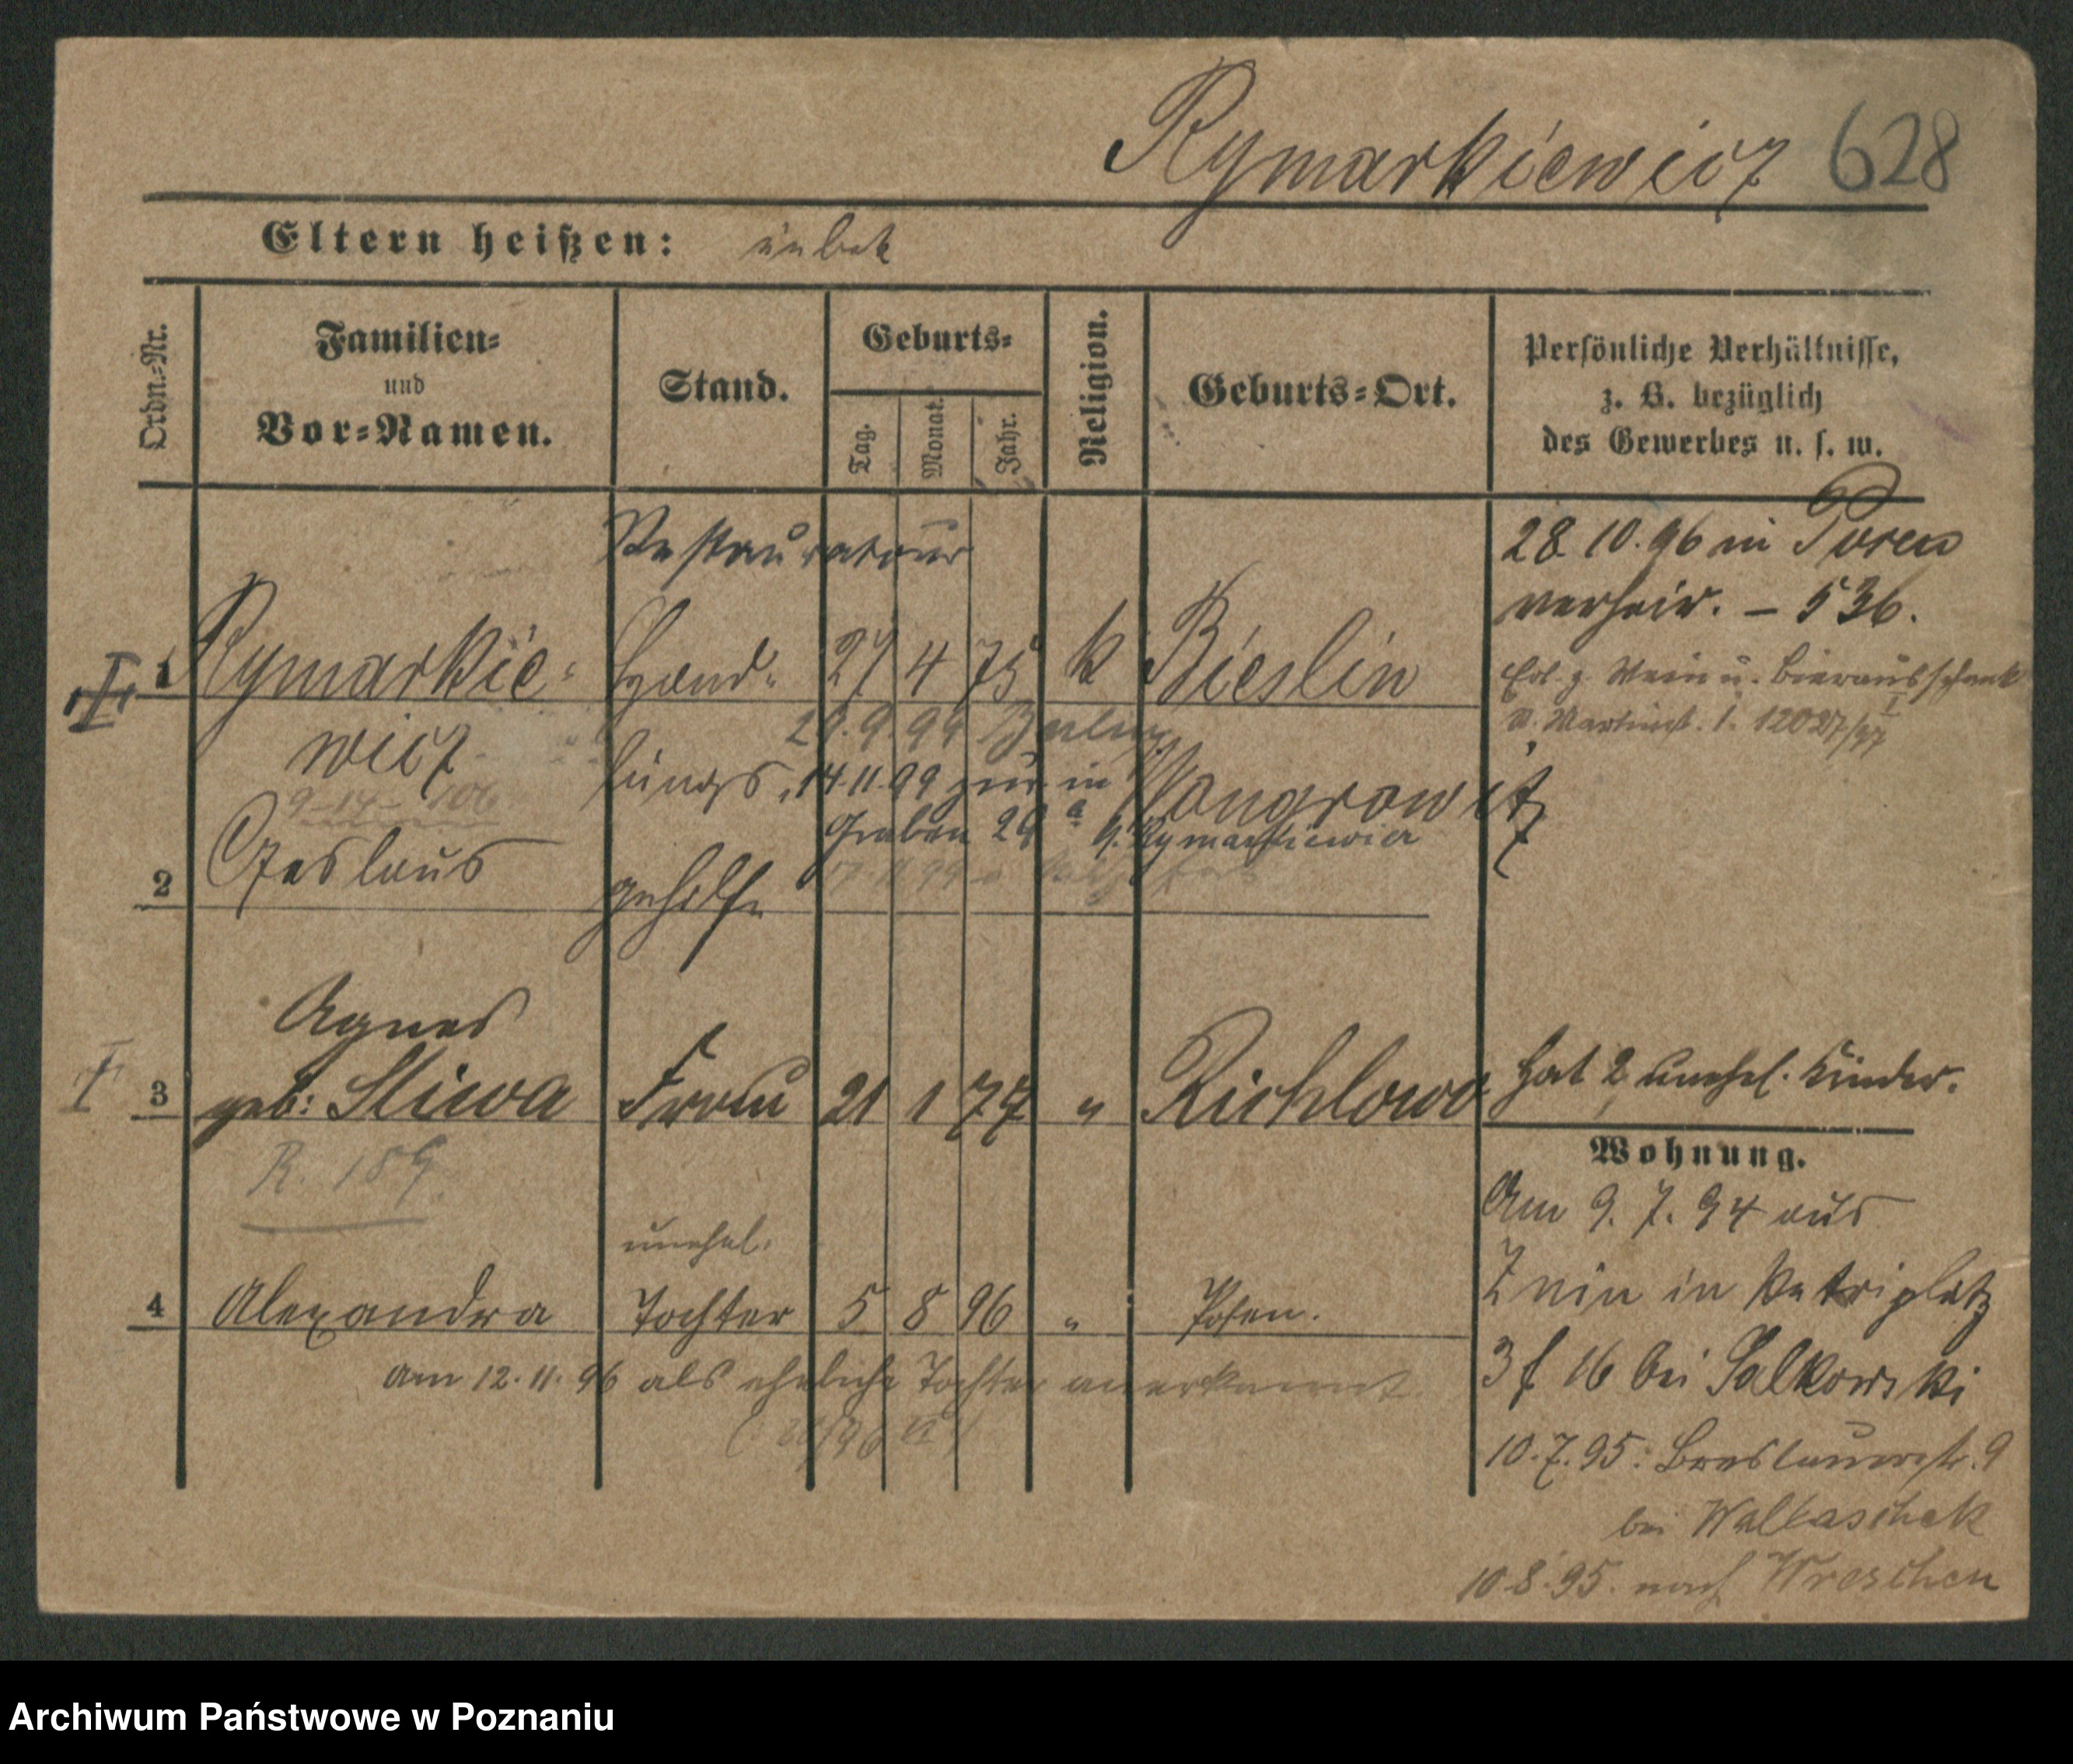 Rymarkiewicz 628
Eltern heißen: unbek
Ordn.=Nr.
Familien=
und
Vor=Namen.
Stand.
Geburts=
Tag.
Monat.
Jahr.
Religion.
Geburts=Ort.
Persönliche Verhältnisse,
z. B. bezüglich
des Gewerbes u. s. w.
Restaurateur
28.10.96 in Posen
verheir. – 536.
I 1 Rymarkie= Hand= 27 4 75 k Bieslin
Erl. z. Wein u. Bierausschank
Martinst. 1. 12027/97
wicz
29.9.99
lungs 14.11.99 in Wongrowitz
Graben 29a b. Rymarkiewicz
2 Czeslaus gehilfe
Agnes
I 3 geb: Sliwa Frau 21 1 77 " Richlowo
hat 2 unehel. Kinder.
R. 189
Wohnung.
Am 9.7.94 aus
Znin in Petriplatz
3 f 16 bei Salkowski
10.7.95: Breslauerstr. 9
bei Walkaschek
10.8.95. nach Wreschen
unehel.
4 Alexandra Tochter 5 8 96 " Posen.
am 12.11.96 als eheliche Tochter anerkannt.